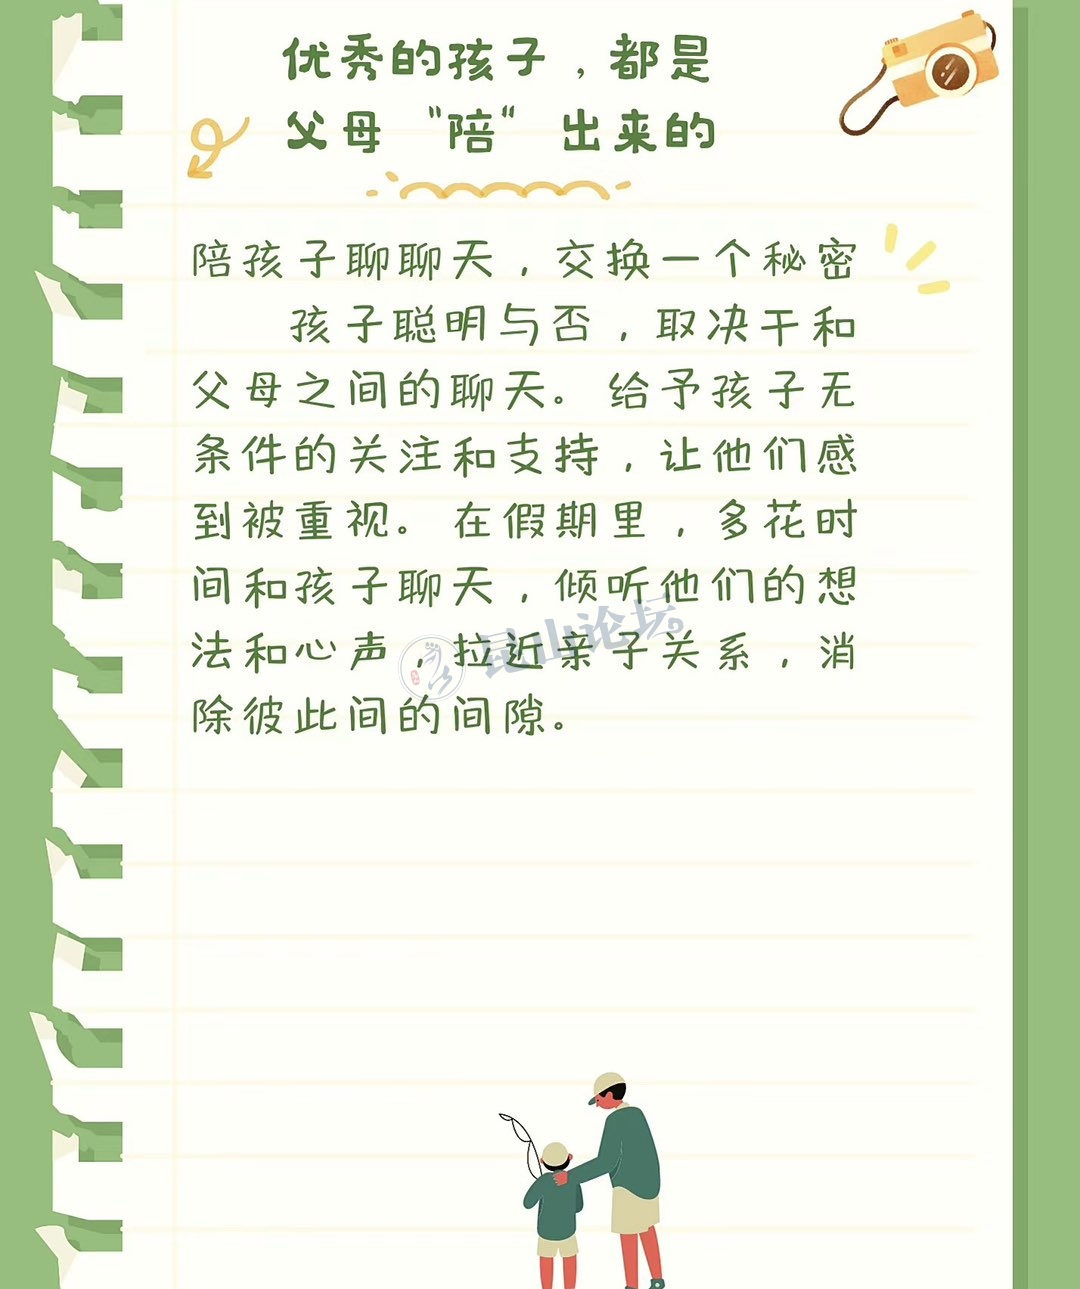 优秀的孩子，都是
父母“陪”出来的
陪孩子聊聊天，交换一个秘密
孩子聪明与否，取决干和
父母之间的聊天。给予孩子无
条件的关注和支持，让他们感
到被重视。在假期里，多花时
间和孩子聊天，倾听他们的想
法和心声，拉近亲子关系，消
除彼此间的间隙。
昆山论坛